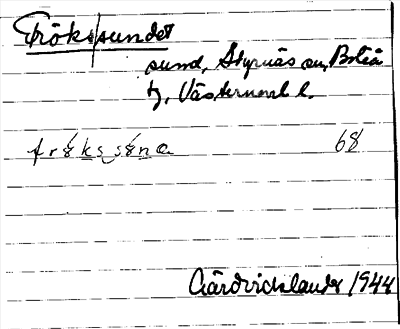 Fröks|sundet
sund, Styrnäs sn, Boteå
tg, Västernorrl. l.
frö̀ks̬sö̀na 68
Gårdvidslander 1944